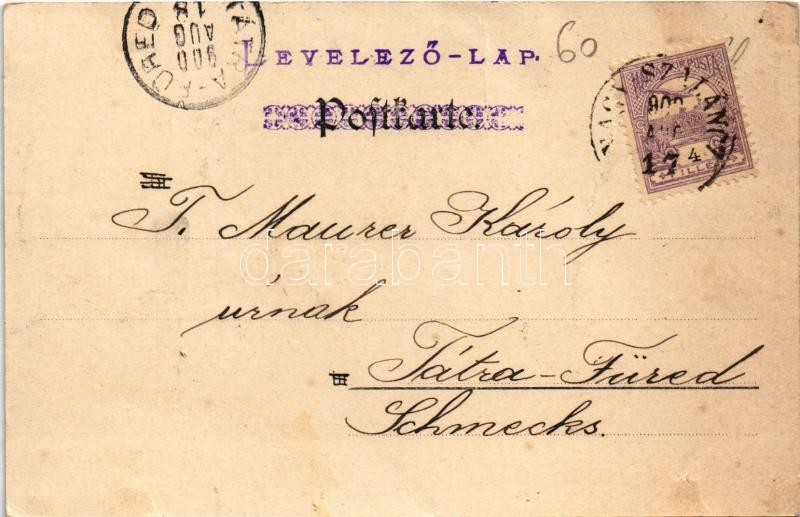 TÁTRA-FÜRED
900
AUG
18
60
LEVELEZŐ-LAP.
Postkarte.
900
AUG
17 4
T. Maurer Károly
darabanth
úrnak
Tátra-Füred
Schmecks.